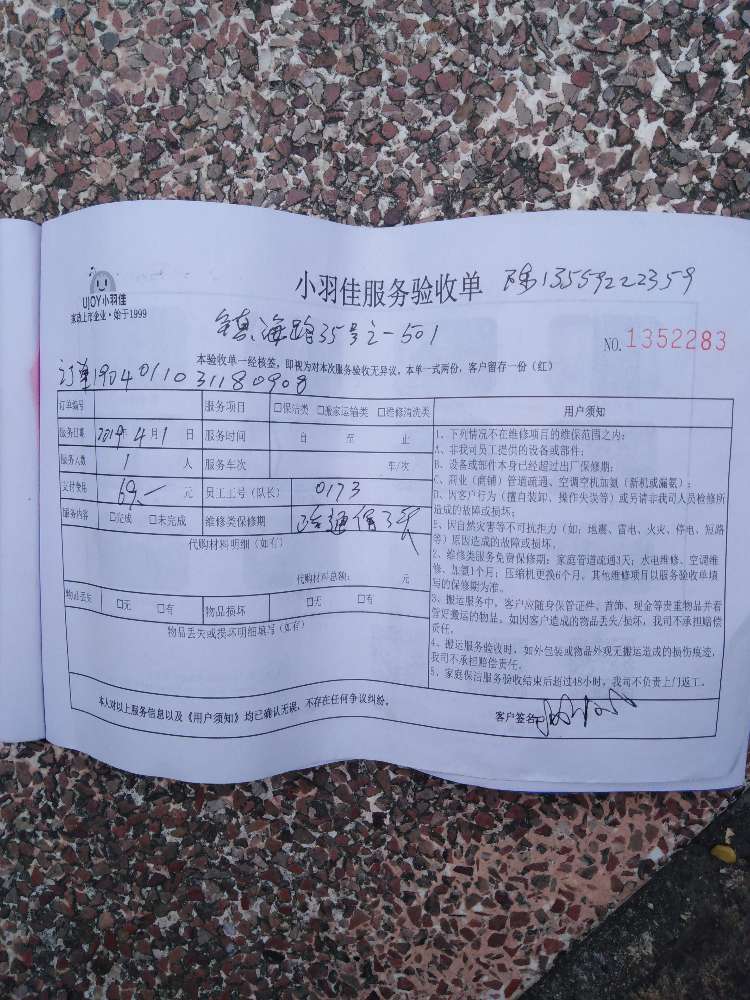 UJOY小羽佳
家政上市企业·始于1999
小羽佳服务验收单 陈13559222359
镇海路35号之一501
NO. 1352283
本验收单一经核签，即视为对本次服务验收无异议，本单一式两份，客户留存一份（红）
订单1904011031180908
订单编号 服务项目 □保洁类 □搬家运输类 □维修清洗类
服务日期 2019年4月1日 服务时间 自 至 止
服务人数 1 人 服务车次 车/次
支付费用 69.— 元 员工工号（队长） 0173
服务内容 □完成 □未完成 维修类保修期 疏通保3天
代购材料明细（如有）
代购材料总额： 元
物品丢失 □无 □有 物品损坏 □无 □有
物品丢失或损坏明细填写（如有）
用户须知
1、下列情况不在维修项目的维保范围之内：
A、非我司员工提供的设备或部件；
B、设备或部件本身已经超过出厂保修期；
C、商业（商铺）管道疏通、空调空机加氨（新机或漏氨）；
D、因客户行为（擅自装卸、操作失误等）或另请非我司人员检修所
造成的故障或损坏；
E、因自然灾害等不可抗拒力（如：地震、雷电、火灾、停电、短路
等）原因造成的故障或损坏。
2、维修类服务免费保修期：家庭管道疏通3天；水电维修、空调维
修、加氨1个月；压缩机更换6个月，其他维修项目以服务验收单填
写的保修期为准。
3、搬运服务中，客户应随身保管证件、首饰、现金等贵重物品并看
管好搬运的物品，如因客户造成的物品丢失/损坏，我司不承担赔偿
责任。
4、搬运服务验收时，如外包装或物品外观无搬运造成的损伤痕迹，
我司不承担赔偿责任。
5、家庭保洁服务验收结束后超过48小时，我司不负责上门返工。
本人对以上服务信息以及《用户须知》均已确认无误，不存在任何争议纠纷。
客户签名